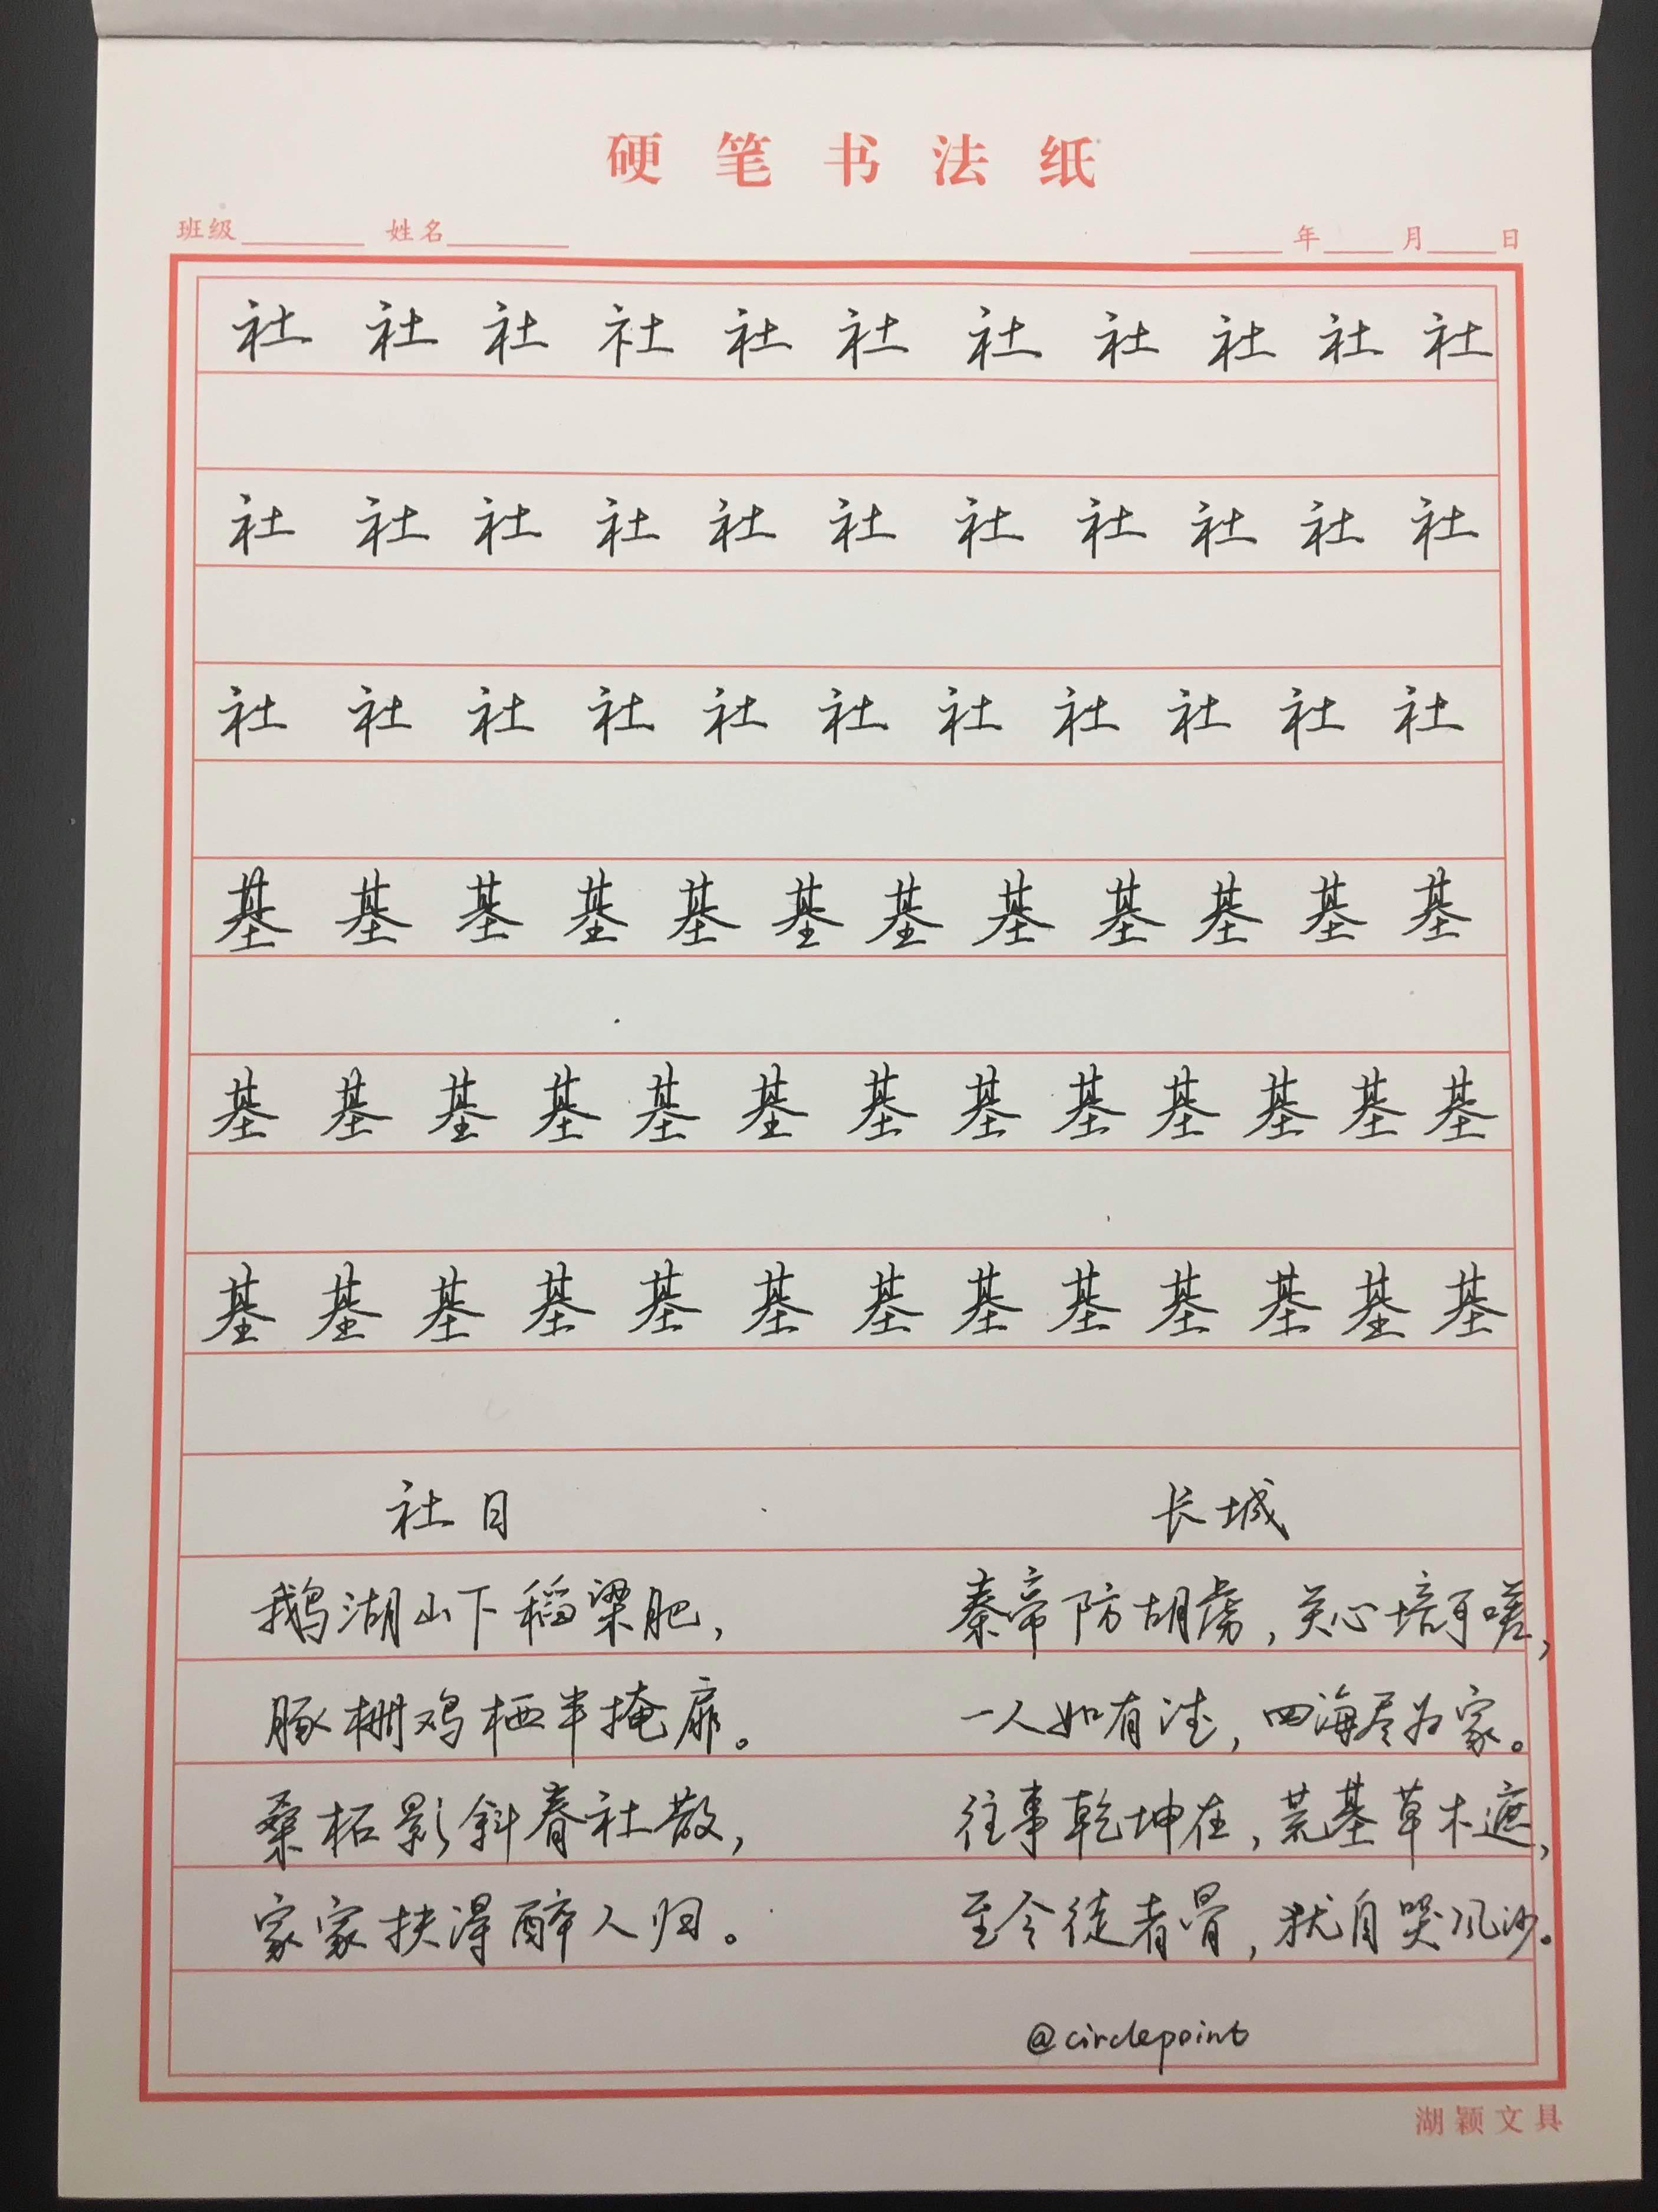 硬笔书法纸
班级 姓名 年 月 日
社 社 社 社 社 社 社 社 社 社 社
社 社 社 社 社 社 社 社 社 社 社
社 社 社 社 社 社 社 社 社 社 社
基 基 基 基 基 基 基 基 基 基 基 基
基 基 基 基 基 基 基 基 基 基 基 基 基
基 基 基 基 基 基 基 基 基 基 基 基 基
社日
鹅湖山下稻粱肥,
豚栅鸡栖半掩扉。
桑柘影斜春社散,
家家扶得醉人归。
长城
秦帝防胡虏,关心培可嗟,
一人如有德,四海尽为家。
往事乾坤在,荒基草木遮,
至今徒者骨,犹自哭风沙。
@circlepoint
湖颖文具